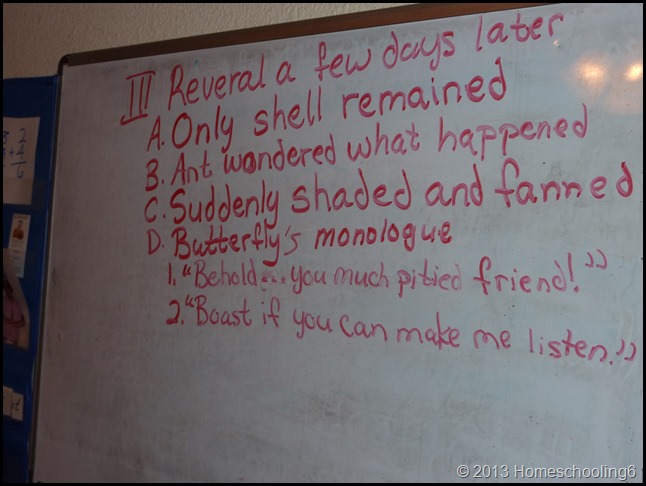 III Reveral a few days later
A. Only shell remained
B. Ant wondered what happened
C. Suddenly shaded and fanned
D. Butterfly's monologue
1. "Behold... you much pitied friend!"
2. "Boast if you can make me listen."
© 2013 Homeschooling6